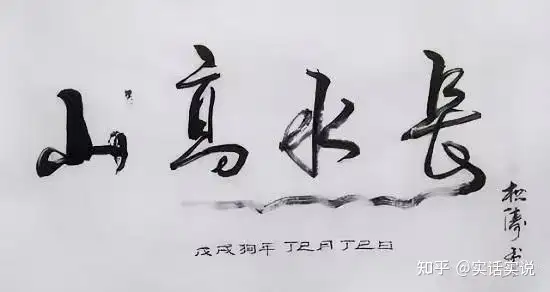 山高水長
松涛书
戊戌狗年 丁巳月丁巳日
知乎 @实话实说